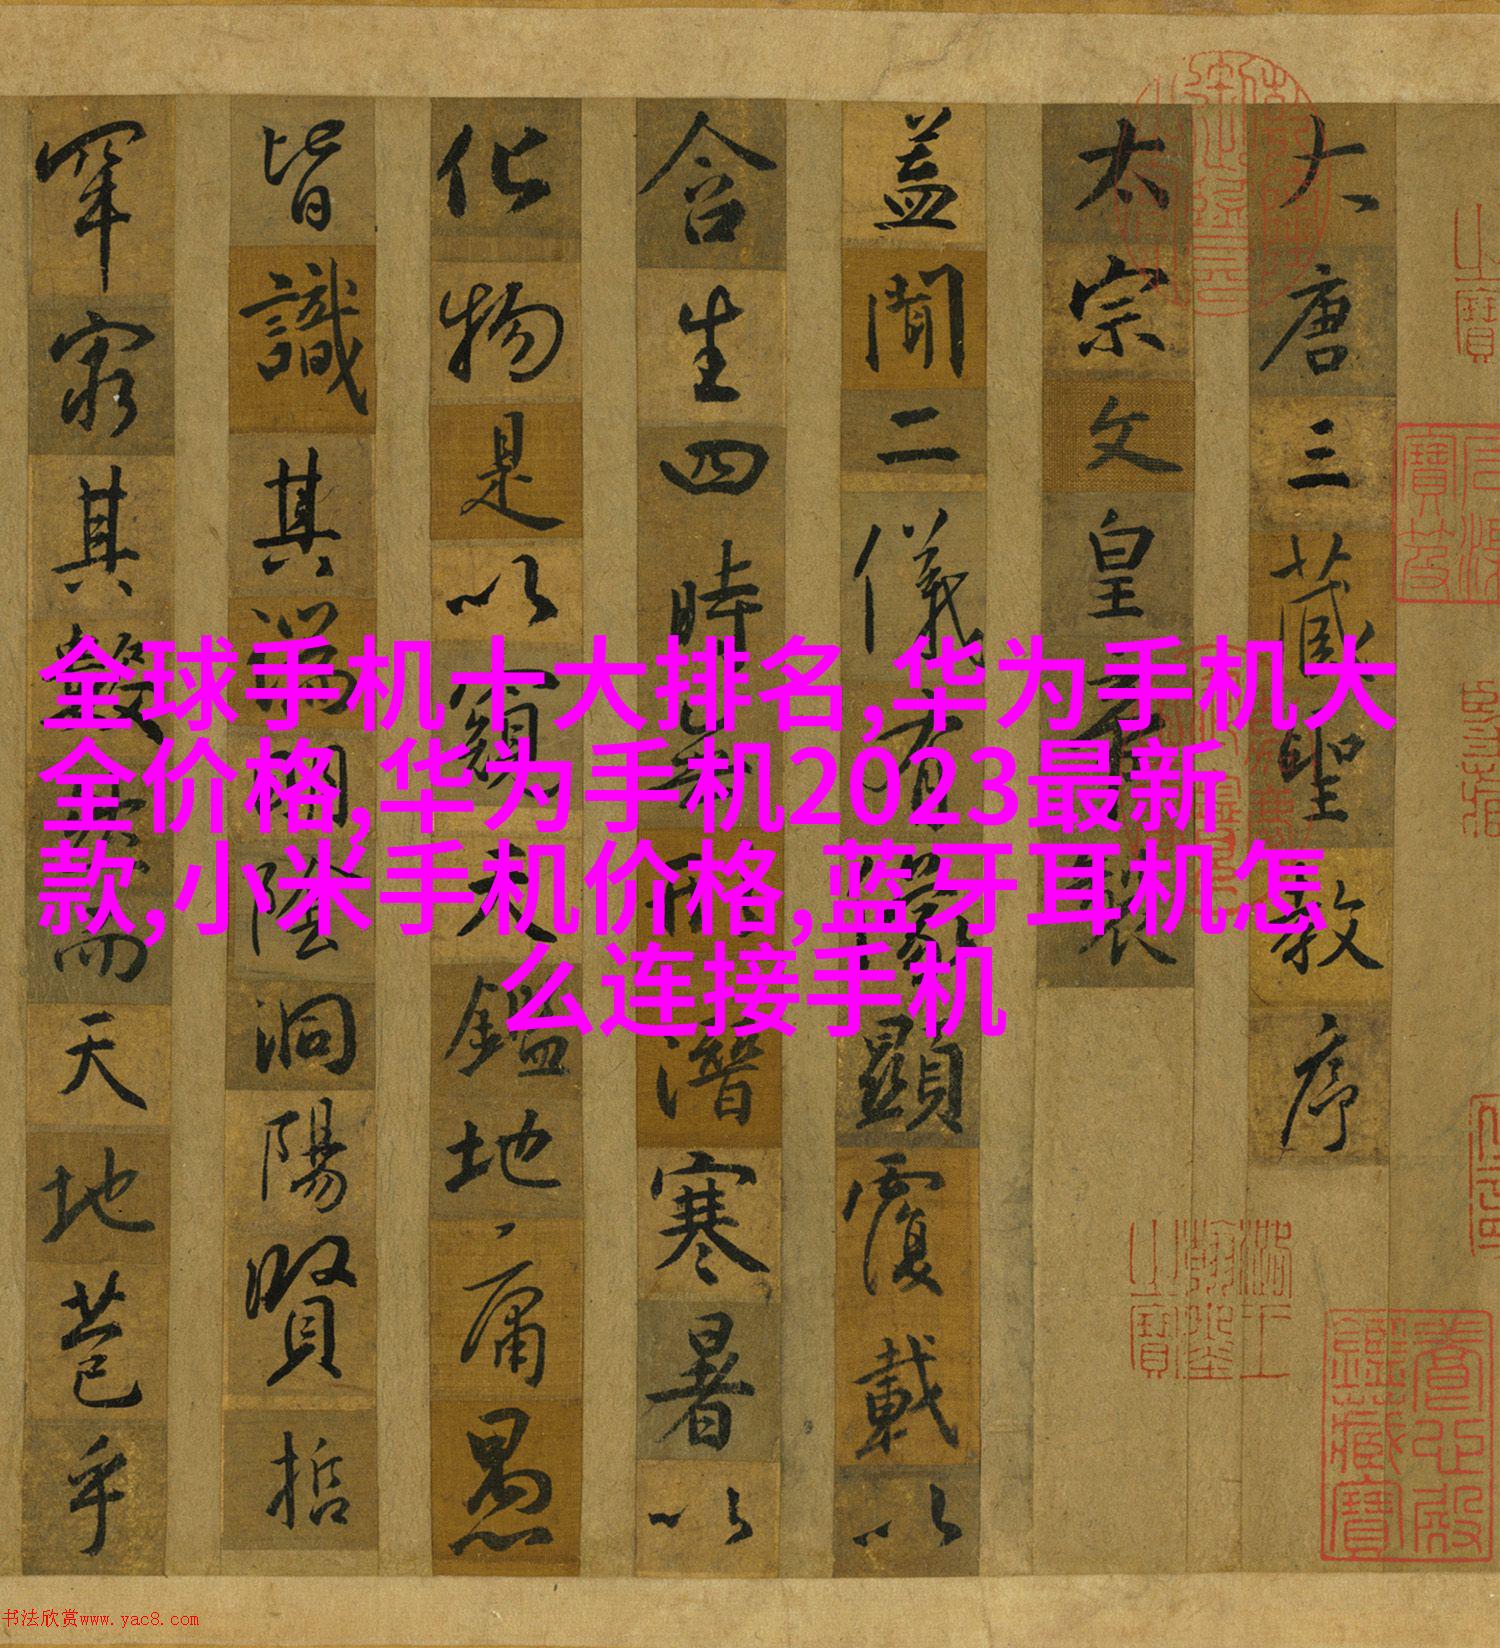 大唐三藏聖教序
太宗文皇帝製
蓋聞二儀有像顯覆載以
含生四時無形潛寒暑以
化物是以窺天鑑地庸愚
皆識其端明陰洞陽賢哲
罕窮其數然而天地苞乎
全球手机十大排名,华为手机大
全价格,华为手机2023最新
款,小米手机价格,蓝牙耳机怎
么连接手机
石渠寶笈
養心殿鑑藏寶
书法欣赏www.yac8.com